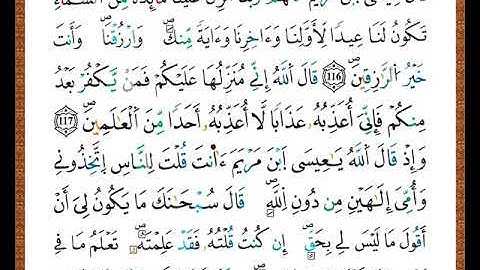 قَالَ عِيسَى ابْنُ مَرْيَمَ اللَّهُمَّ رَبَّنَا أَنزِلْ عَلَيْنَا مَائِدَةً مِّنَ السَّمَاءِ
تَكُونُ لَنَا عِيدًا لِّأَوَّلِنَا وَءَاخِرِنَا وَءَايَةً مِّنكَ وَارْزُقْنَا وَأَنتَ
خَيْرُ الرَّازِقِينَ ١١٦ قَالَ اَللَّهُ إِنِّي مُنَزِّلُهَا عَلَيْكُمْ فَمَنْ يَّكْفُرْ بَعْدُ
مِنكُمْ فَإِنِّيَ أُعَذِّبُهُ عَذَابًا لَّا أُعَذِّبُهُ أَحَدًا مِّنَ اَلْعَالَمِينَ ١١٧
وَإِذْ قَالَ اَللَّهُ يَاعِيسَى اَبْنَ مَرْيَمَ ءَأَنتَ قُلْتَ لِلنَّاسِ اِتَّخِذُونِي
وَأُمِّيَ إِلَاهَيْنِ مِن دُونِ اِللَّهِ قَالَ سُبْحَانَكَ مَا يَكُونُ لِيَ أَنْ
أَقُولَ مَا لَيْسَ لِي بِحَقٍّ إِن كُنتُ قُلْتُهُ فَقَدْ عَلِمْتَهُ تَعْلَمُ مَا فِي